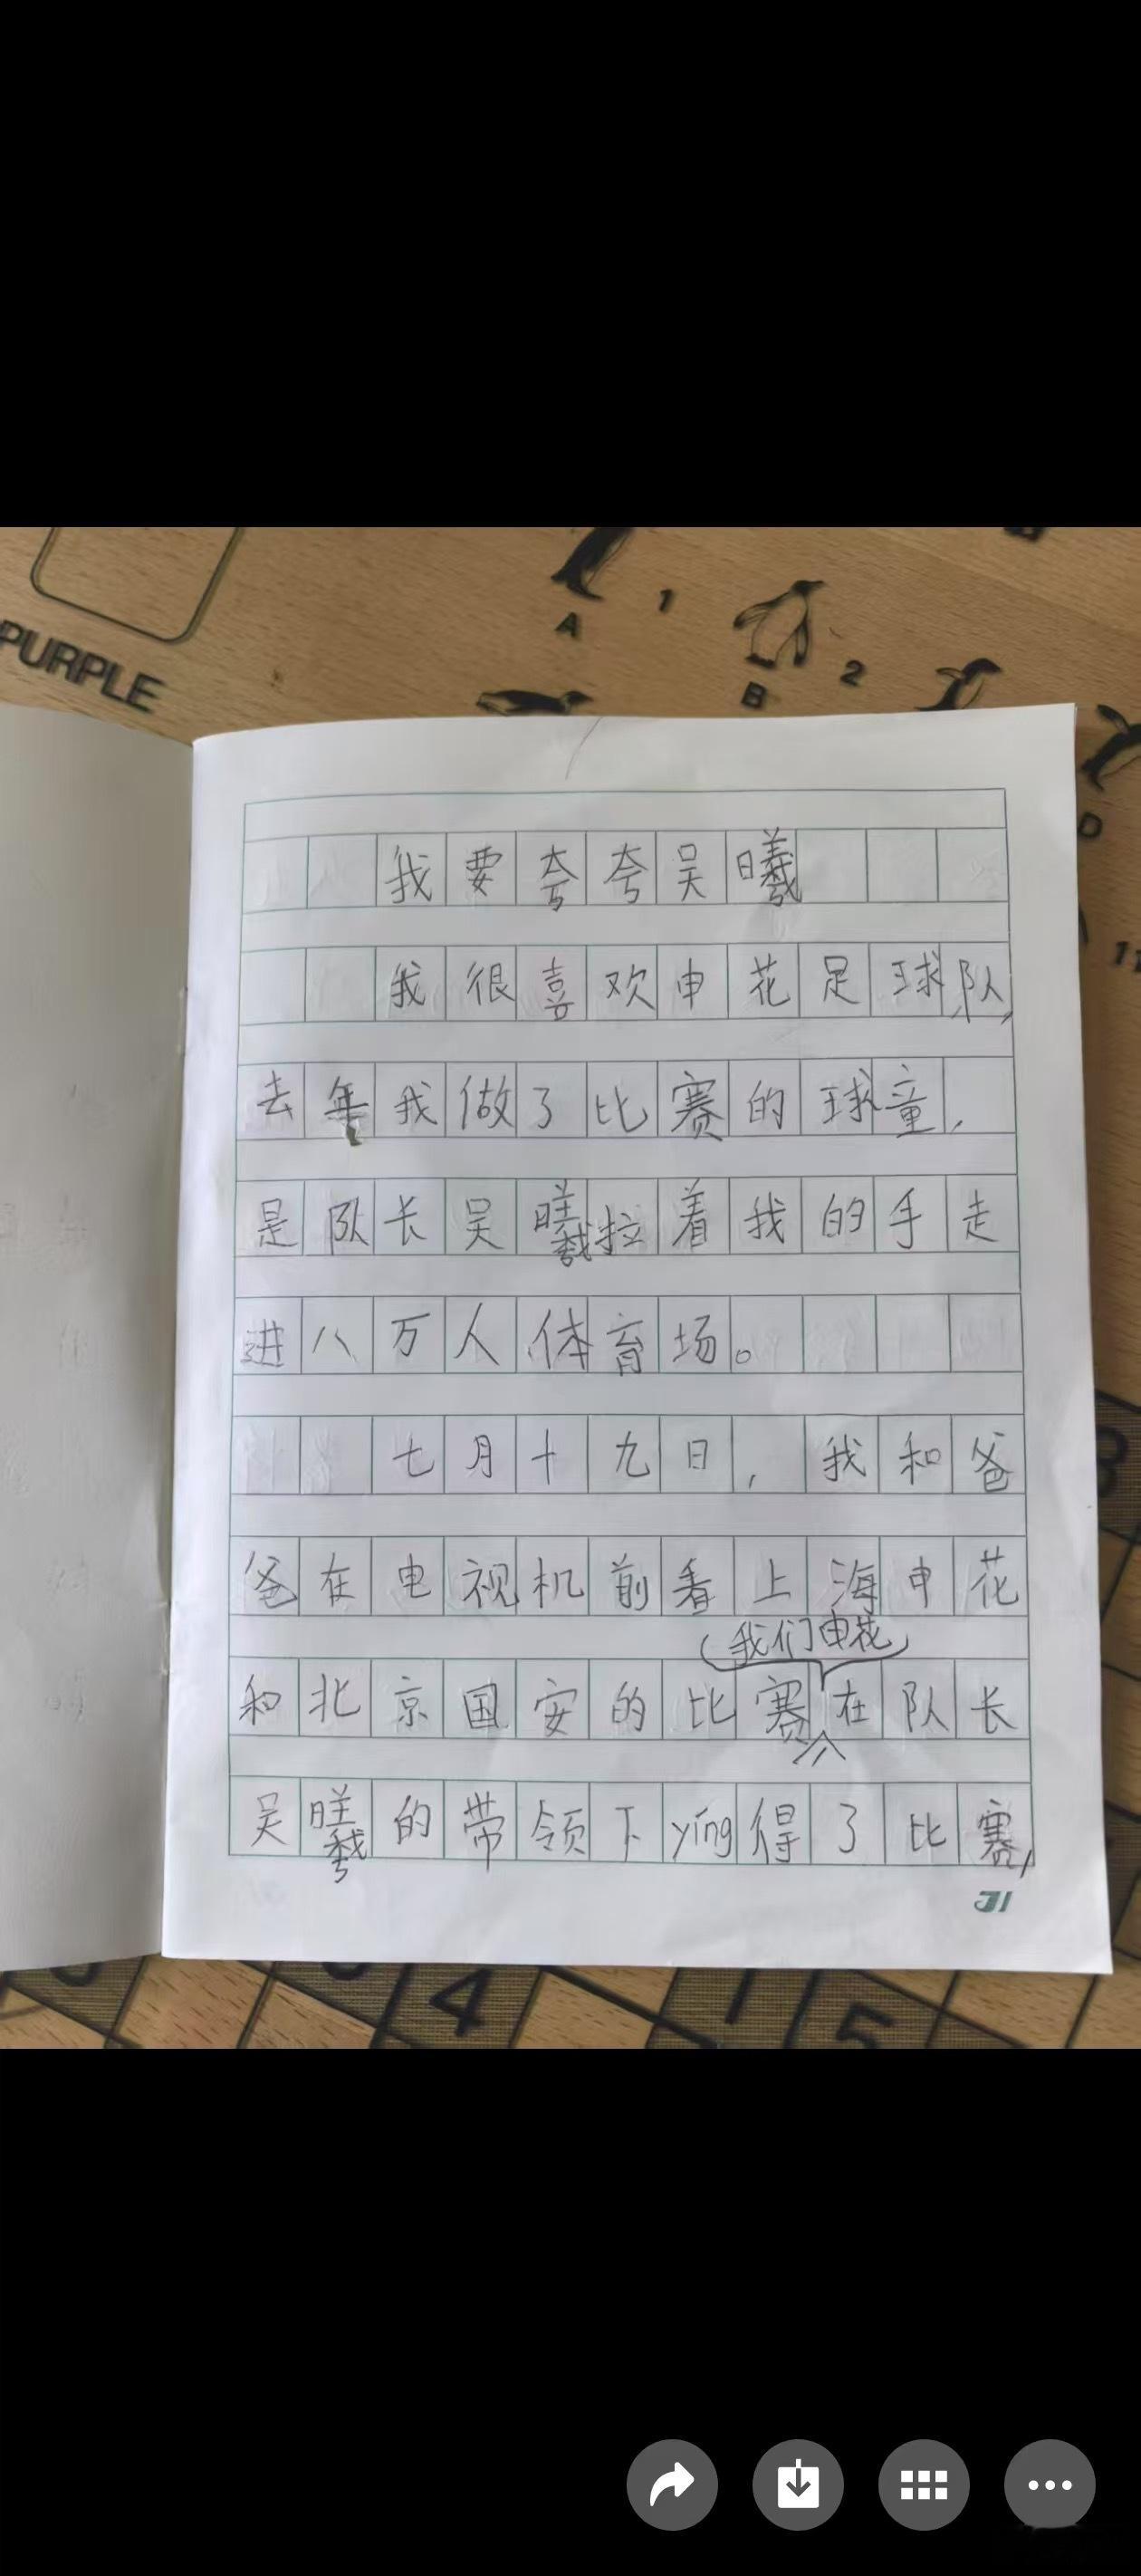 PURPLE
A 1
B 2
D
11
我要夸夸吴曦
我很喜欢申花足球队,
去年我做了比赛的球童,
是队长吴曦拉着我的手走
进八万人体育场。
七月十九日,我和爸
爸在电视机前看上海申花
(我们申花)
和北京国安的比赛在队长
吴曦的带领下yíng得了比赛,
31
4
5